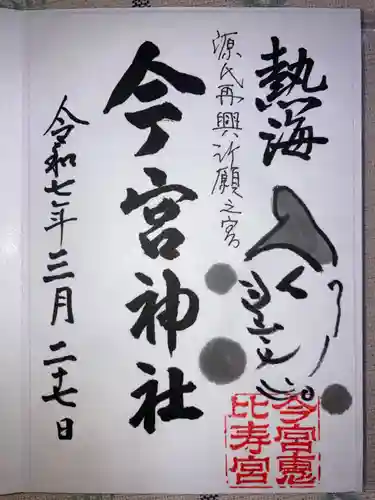 熱海
源氏再興祈願之宮
今宮神社
令和七年三月二十七日
今宮恵
比寿宮